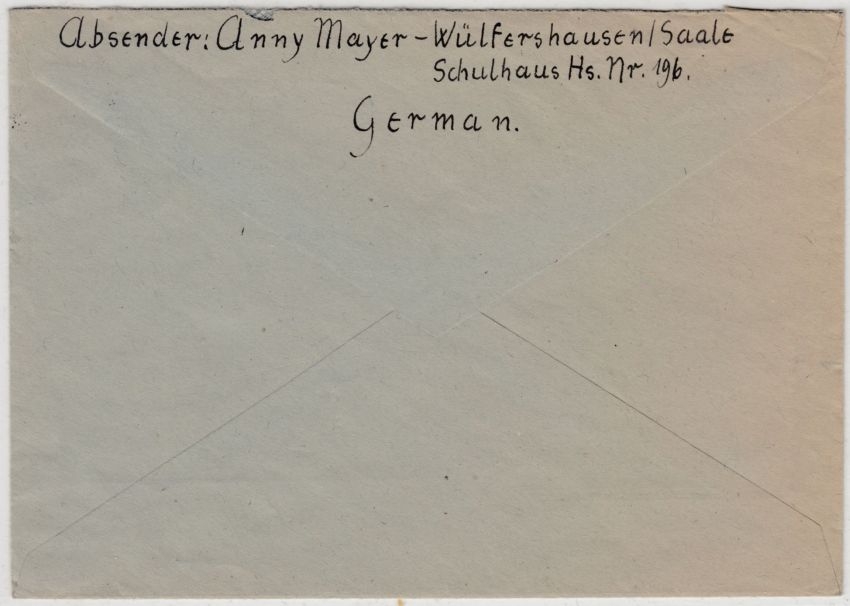 Absender: Anny Mayer – Wülfershausen/Saale
Schulhaus Hs. Nr. 196.
German.